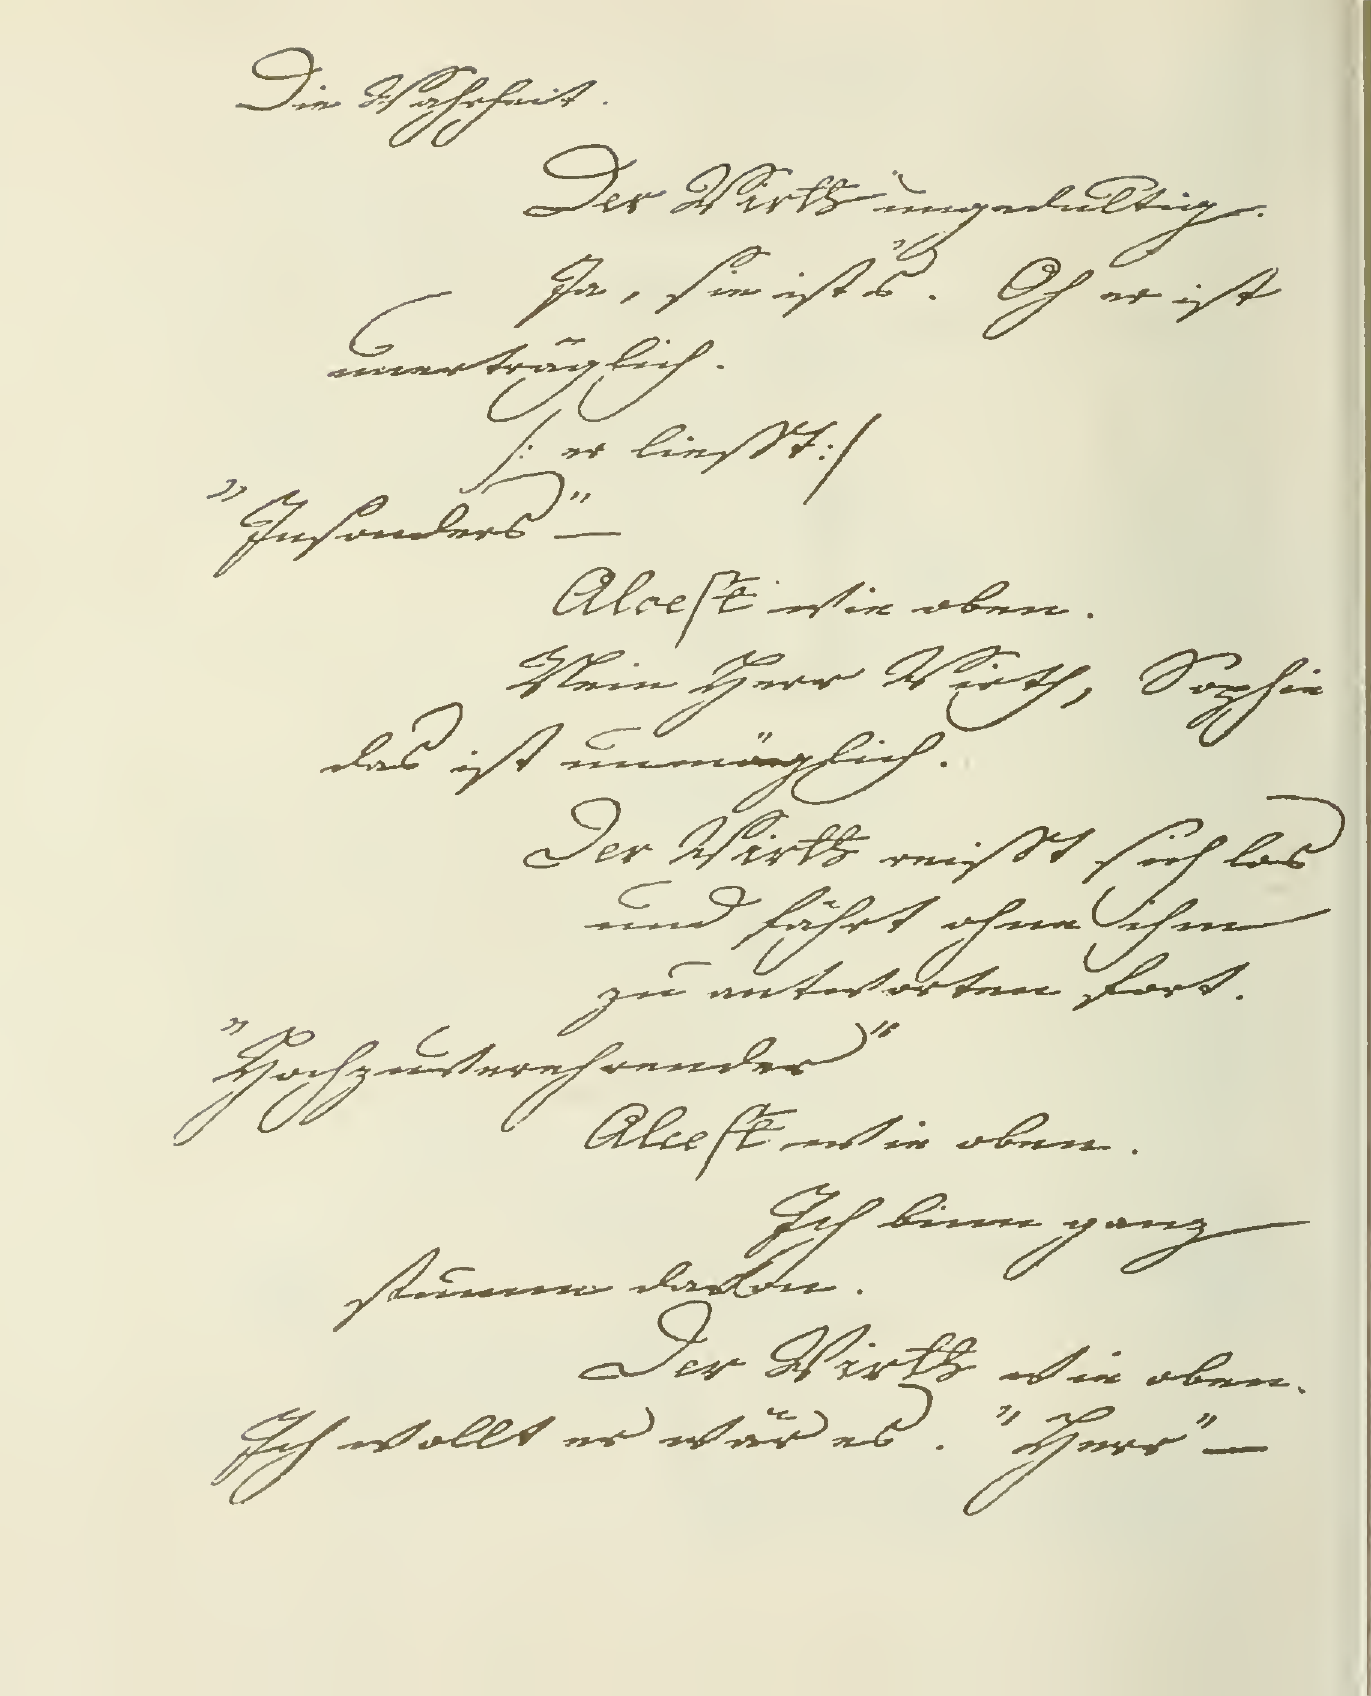 Die Wahrheit.
Der Wirth ungedultig.
Ja, sie ists. Oh er ist
unerträglich.
/: er liesst:/
"Insonders"—
Alcest wie oben.
Mein Herr Wirth, Sophie
das ist unmöglich.
Der Wirth reisst sich los
und fährt ohne ihm
zu antworten fort.
"Hochzuverehrender"
Alcest wie oben.
Ich binn ganz
stumm davon.
Der Wirth wie oben.
Ich wollt er wär es. "Herr"—